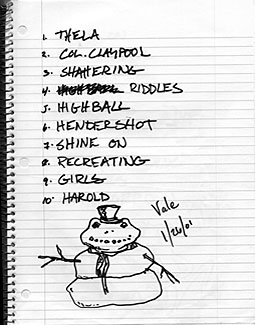 1. THELA
2. COL. CLAYPOOL
3. SHATTERING
4. HIGHBALL RIDDLES
5. HIGHBALL
6. HENDERSHOT
7. SHINE ON
8. RECREATING
9. GIRLS
10. HAROLD
Vale
1/26/01